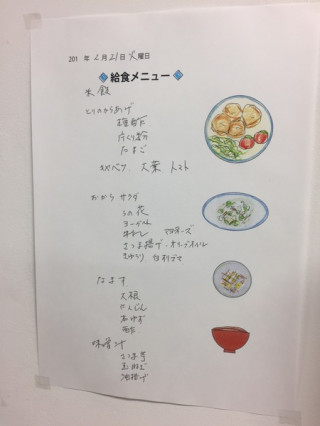 201 年 2月21日 火曜日
給食メニュー
米飯
とりのからあげ
片くり粉
たまご
キャベツ 大葉 トマト
おから サラダ
うの花
ヨーグルト
牛乳 マヨネーズ
さつま揚げ オリーブオイル
きゅうり 白すりゴマ
なます
大根
にんじん
あゆす
味噌汁
さつま芋
玉ねぎ
油揚げ